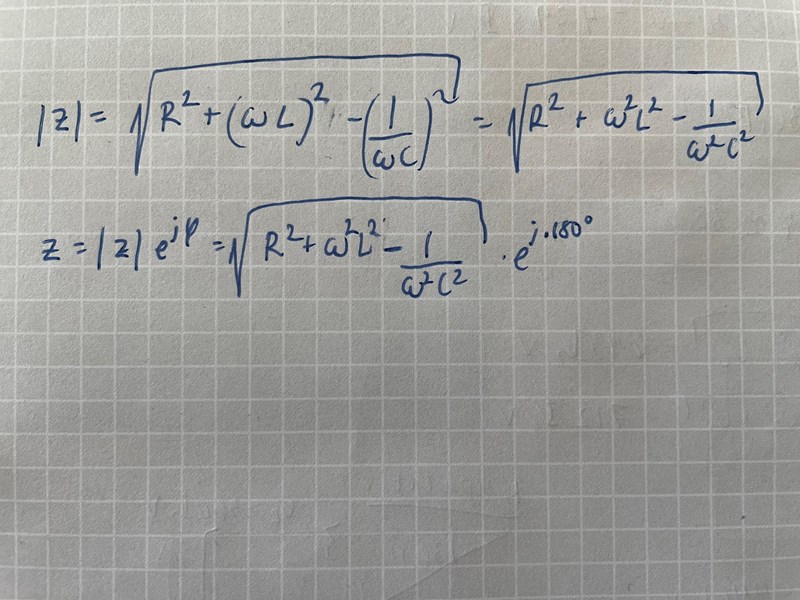 |Z| = √(R² + (ωL)² - (1/ωC)²) = √(R² + ω²L² - 1/ω²C²)
Z = |Z| e^jφ = √(R² + ω²L² - 1/ω²C²) · e^j·180°